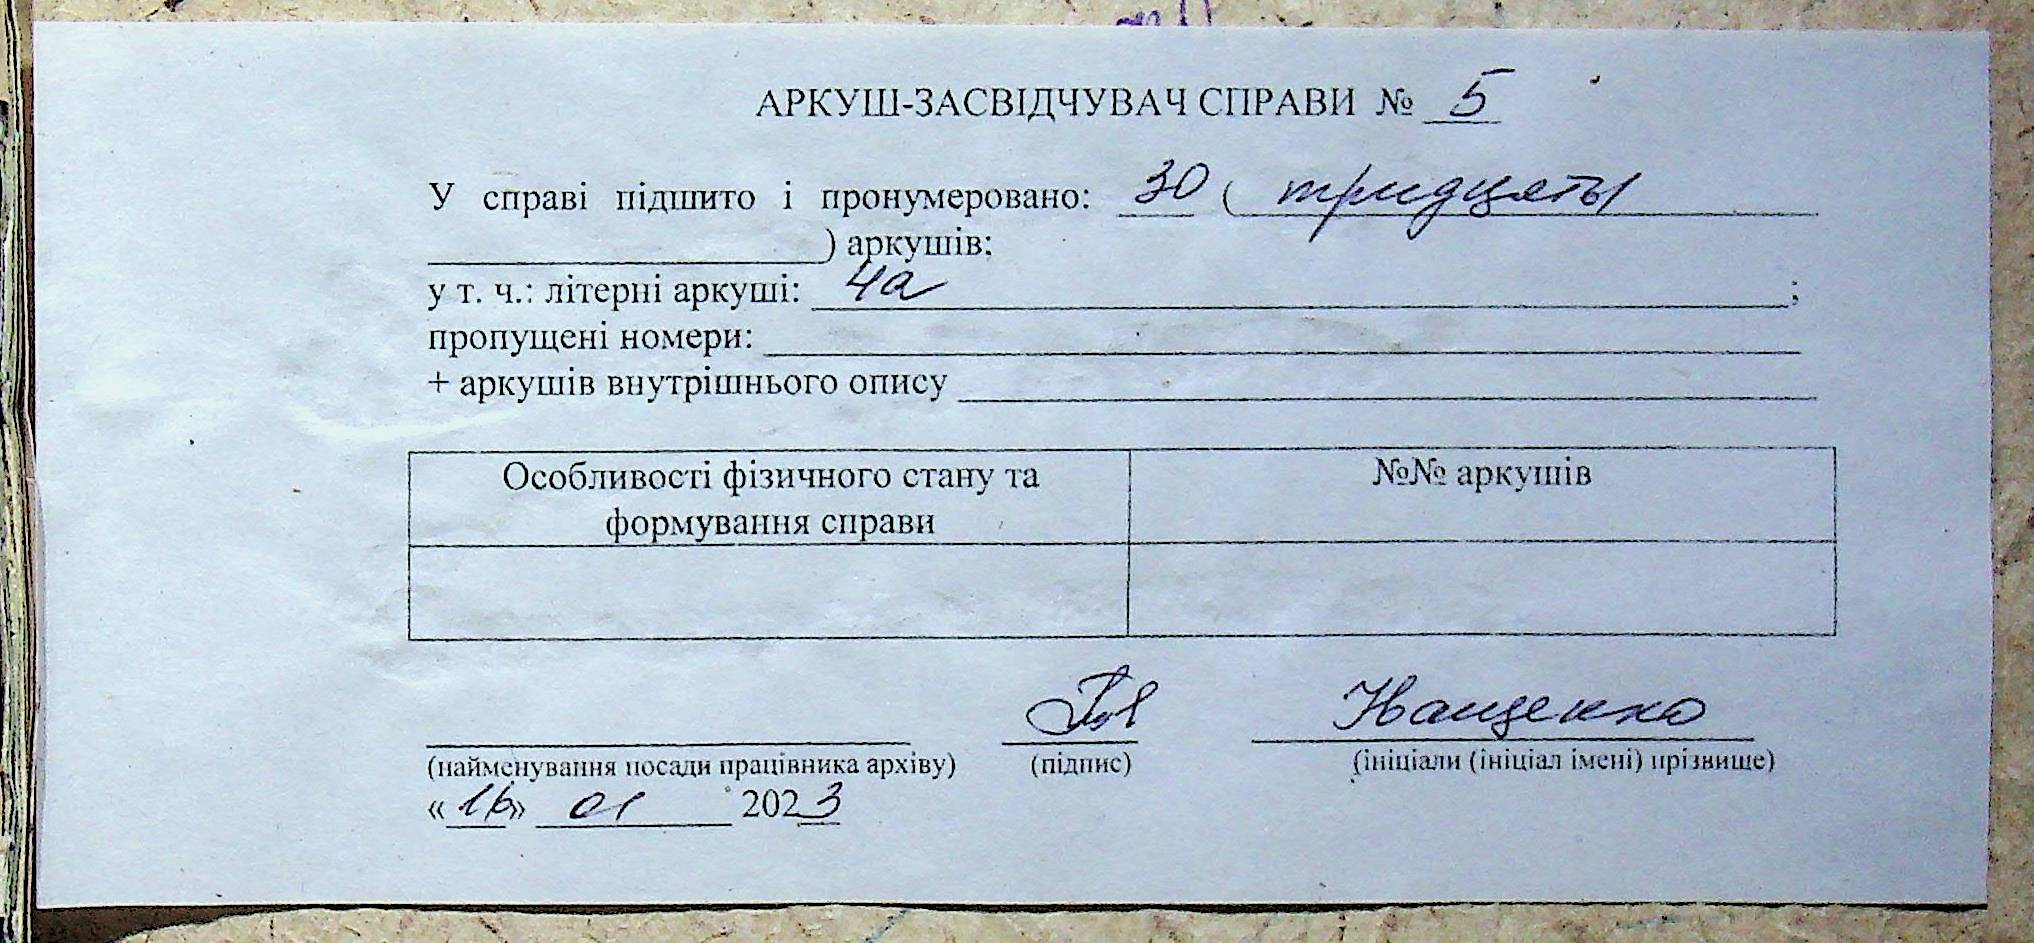 АРКУШ-ЗАСВІДЧУВАЧ СПРАВИ № 5
У справі підшито і пронумеровано: 30 ( тридцять
) аркушів;
у т. ч.: літерні аркуші: 4а ;
пропущені номери:
+ аркушів внутрішнього опису
Особливості фізичного стану та формування справи
№№ аркушів
Іващенко
(найменування посади працівника архіву) (підпис) (ініціали (ініціал імені) прізвище)
«16» 01 2023